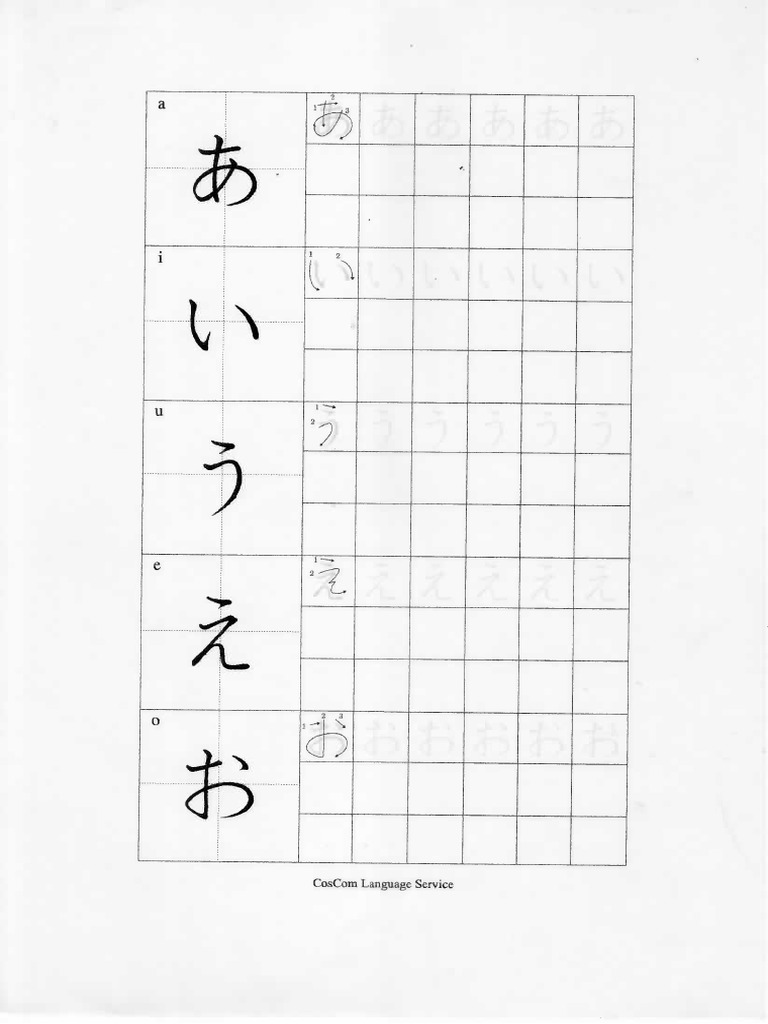 a
あ
1 2 3
あ あ あ あ あ あ
i
い
1 2
い い い い い い
u
う
1
2
う う う う う う
e
え
1
2
え え え え え え
o
お
1 2 3
お お お お お お
CosCom Language Service